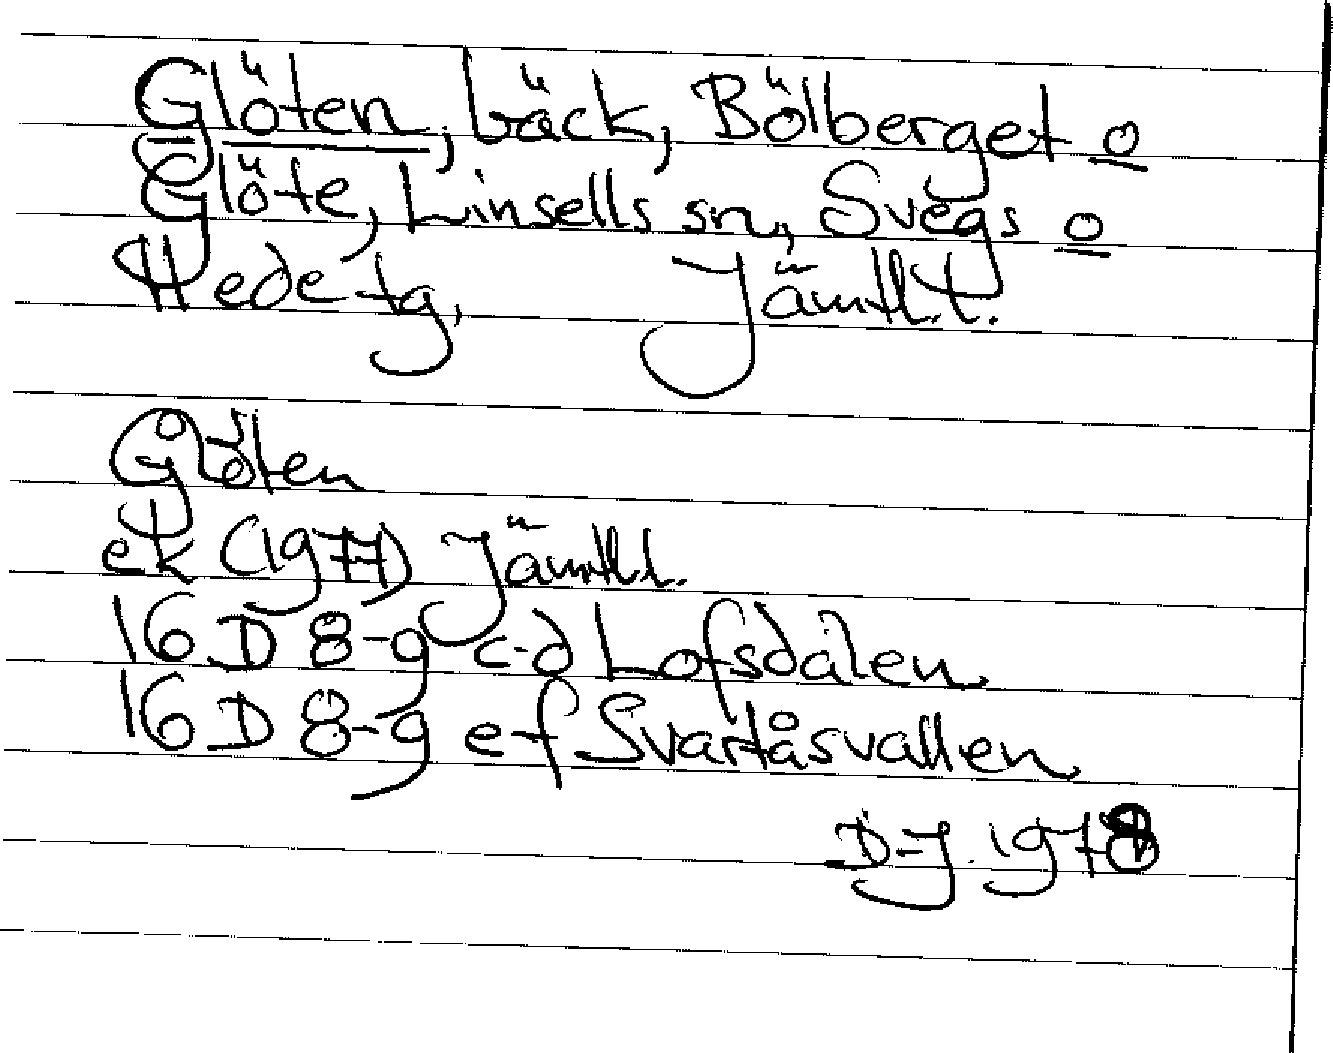 Glöten, bäck, Bölberget o
Glöte, Linsells sn, Svegs o
Hede tg, Jämtl.l.
Glöten
ek (1977) Jämtl.l.
16 D 8-g c-d Lofsdalen
16 D 8-g e-f Svartåsvallen
D-J. 1978